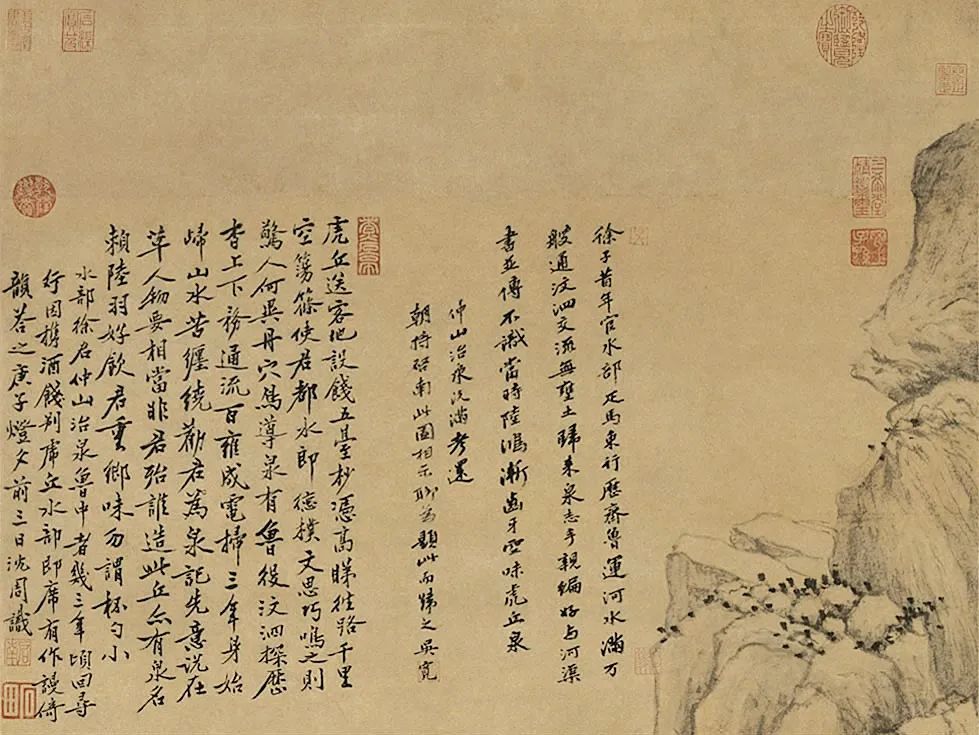 三希堂精鑑璽
宜子孫
徐子昔年官水部疋馬東行歷齊魯運河水滿万
艘通汶泗交流無壅土歸來泉志手親編好与河渠
書並傳不識當時陸鴻漸齒牙空味虎丘泉
仲山治泉既滿考還
朝持啓南此圖相示聊為題此而歸之吳寬
虎丘送客地設餞五臺杪憑高睇往路千里
空簜篠使君都水郎德樸文思巧鳴之則
驚人何異丹穴鳥導泉有魯役汶泗探歷
杳上下務通流百壅成電掃三年身始
歸山水苦纏繞勸君為泉記先意説在
草人物要相當非君殆誰造此丘亦有泉名
賴陸羽好飲君重鄉味勿謂杯勺小
水部徐君仲山治泉魯中者幾三年頃回尋
行因攜酒餞別虎丘水部即席有作謾倚
韻答之庚子燈夕前三日沈周識